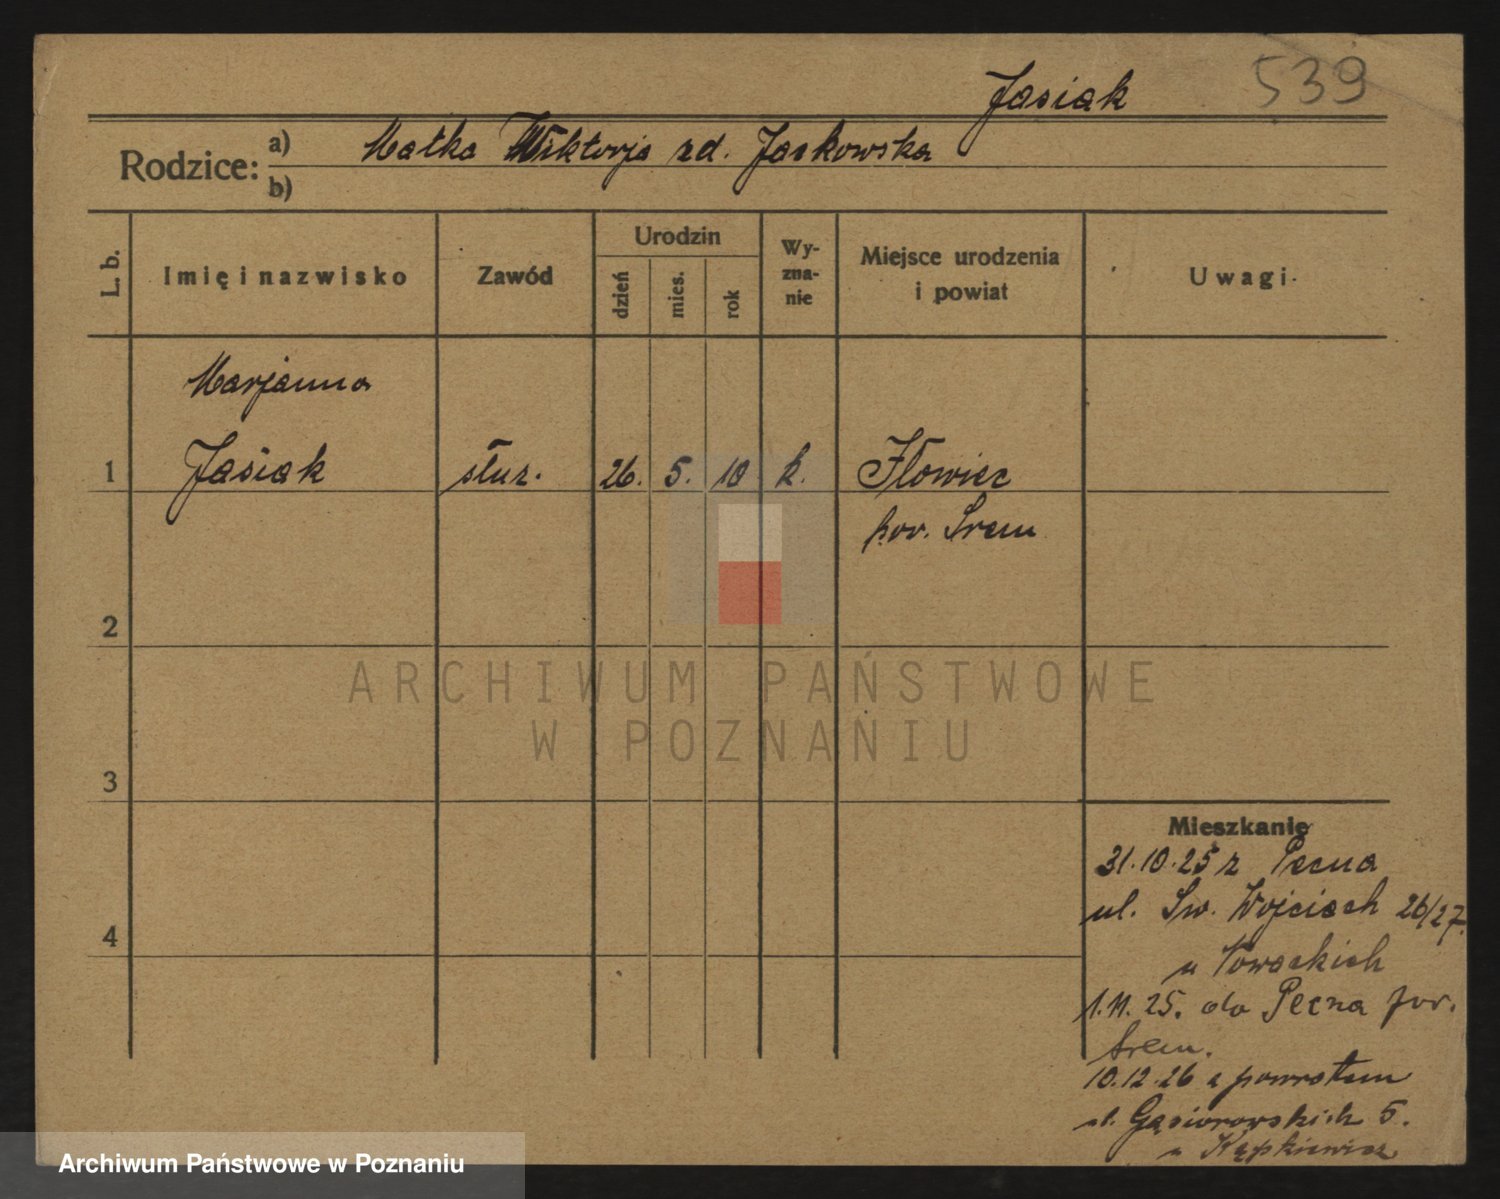 Jasiak 539
Rodzice: a) Matka Wiktorja zd. Jackowska
b)
L. b. Imię i nazwisko Zawód Urodzin dzień mies. rok Wyznanie Miejsce urodzenia i powiat Uwagi
Marjanna
1 Jasiak służ. 26. 5. 10 k. Iłowiec
pow. Śrem
2
ARCHIWUM PAŃSTWOWE
W POZNANIU
3
Mieszkanie
31.10.25 z Pecna
ul. Św. Wojciech 26/27.
4
u Nowackich
1.11.25. do Pecna pow.
Śrem.
10.12.26 z powrotem
ul. Gąsiorowskich 5.
u
Archiwum Państwowe w Poznaniu